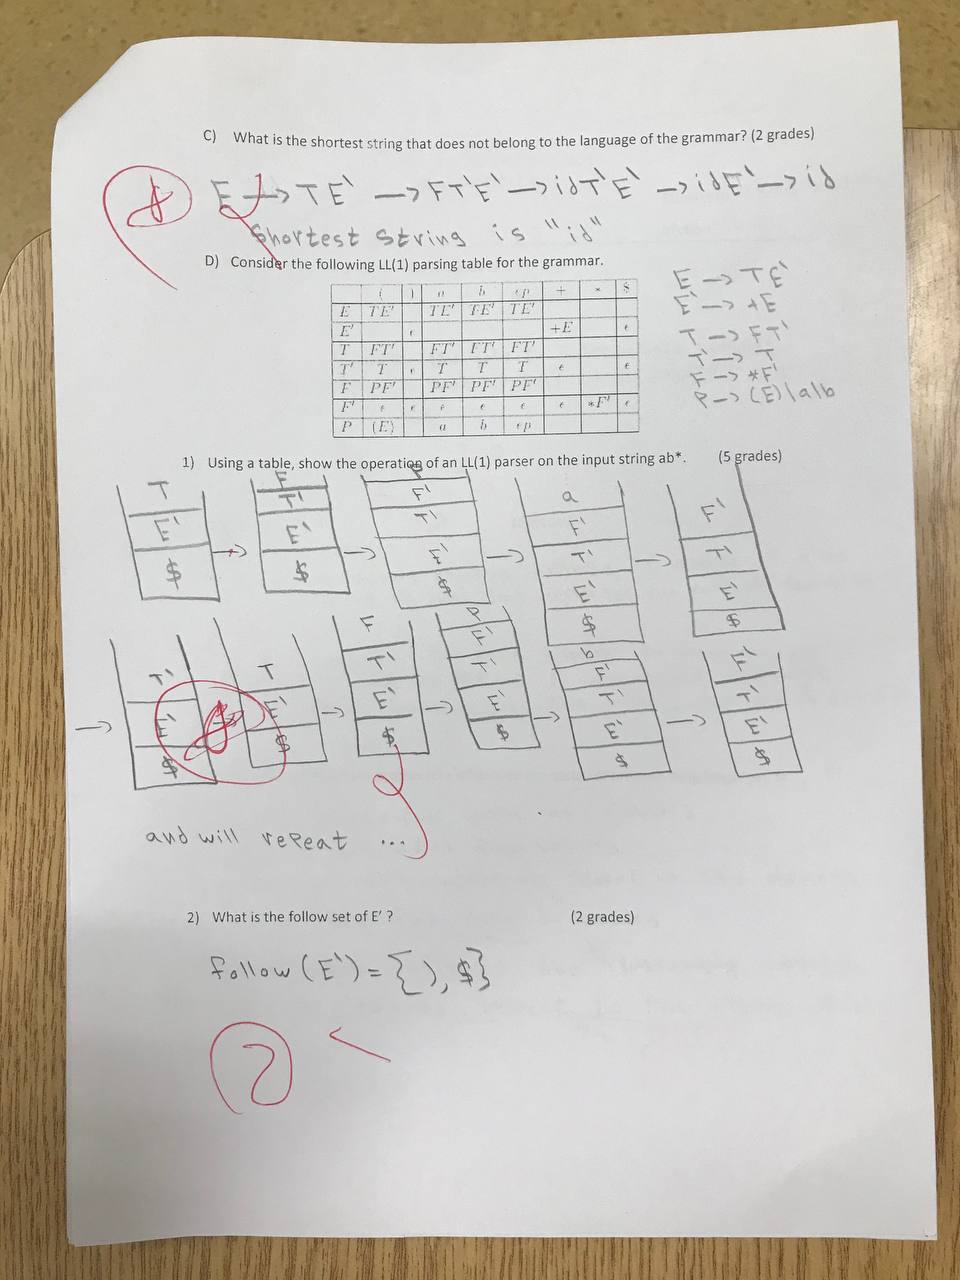 C) What is the shortest string that does not belong to the language of the grammar? (2 grades)
E —> T E` —> F T` E` —> id T` E` —> id E` —> id
Shortest string is "id"
D) Consider the following LL(1) parsing table for the grammar.
( ) a b ep + * $
E TE' TE' TE' TE'
E' ϵ +E ϵ
T FT' FT' FT' FT'
T' T ϵ T T T ϵ ϵ
F PF' PF' PF' PF'
F' ϵ ϵ ϵ ϵ ϵ ϵ *F' ϵ
P (E) a b ep
E —> T E`
E` —> +E
T —> F T`
T` —> T
F —> *F`
P —> (E) | a | b
1) Using a table, show the operation of an LL(1) parser on the input string ab*. (5 grades)
T E` $ —> F T` E` $ —> P F` T` E` $ —> a F` T` E` $ —> F` T` E` $
—> T` E` $ —> T E` $ —> F T` E` $ —> P F` T` E` $ —> b F` T` E` $ —> F` T` E` $
and will repeat ...
2) What is the follow set of E' ? (2 grades)
follow (E`) = { ), $}
2